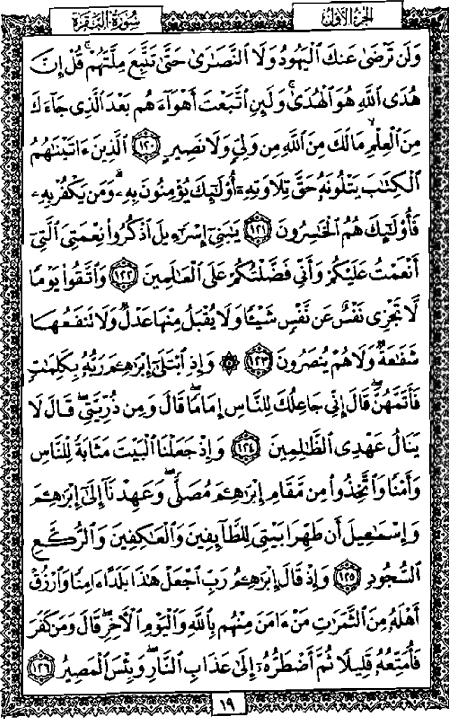 الجزء الأول
سورة البقرة
وَلَن تَرْضَىٰ عَنكَ ٱلْيَهُودُ وَلَا ٱلنَّصَٰرَىٰ حَتَّىٰ تَتَّبِعَ مِلَّتَهُمْ ۗ قُلْ إِنَّ
هُدَى ٱللَّهِ هُوَ ٱلْهُدَىٰ ۗ وَلَئِنِ ٱتَّبَعْتَ أَهْوَآءَهُم بَعْدَ ٱلَّذِى جَآءَكَ
مِنَ ٱلْعِلْمِ ۙ مَا لَكَ مِنَ ٱللَّهِ مِن وَلِىٍّ وَلَا نَصِيرٍ ١٢٠ ٱلَّذِينَ ءَاتَيْنَٰهُمُ
ٱلْكِتَٰبَ يَتْلُونَهُۥ حَقَّ تِلَاوَتِهِۦٓ أُو۟لَٰٓئِكَ يُؤْمِنُونَ بِهِۦ ۗ وَمَن يَكْفُرْ بِهِۦ
فَأُو۟لَٰٓئِكَ هُمُ ٱلْخَٰسِرُونَ ١٢١ يَٰبَنِىٓ إِسْرَٰٓءِيلَ ٱذْكُرُوا۟ نِعْمَتِىَ ٱلَّتِىٓ
أَنْعَمْتُ عَلَيْكُمْ وَأَنِّى فَضَّلْتُكُمْ عَلَى ٱلْعَٰلَمِينَ ١٢٢ وَٱتَّقُوا۟ يَوْمًا
لَّا تَجْزِى نَفْسٌ عَن نَّفْسٍ شَيْـًٔا وَلَا يُقْبَلُ مِنْهَا عَدْلٌ وَلَا تَنفَعُهَا
شَفَٰعَةٌ وَلَا هُمْ يُنصَرُونَ ١٢٣ ۞ وَإِذِ ٱبْتَلَىٰٓ إِبْرَٰهِـۧمَ رَبُّهُۥ بِكَلِمَٰتٍ
فَأَتَمَّهُنَّ ۖ قَالَ إِنِّى جَاعِلُكَ لِلنَّاسِ إِمَامًا ۖ قَالَ وَمِن ذُرِّيَّتِى ۖ قَالَ لَا
يَنَالُ عَهْدِى ٱلظَّٰلِمِينَ ١٢٤ وَإِذْ جَعَلْنَا ٱلْبَيْتَ مَثَابَةً لِّلنَّاسِ
وَأَمْنًا وَٱتَّخِذُوا۟ مِن مَّقَامِ إِبْرَٰهِـۧمَ مُصَلًّى ۖ وَعَهِدْنَآ إِلَىٰٓ إِبْرَٰهِـۧمَ
وَإِسْمَٰعِيلَ أَن طَهِّرَا بَيْتِىَ لِلطَّآئِفِينَ وَٱلْعَٰكِفِينَ وَٱلرُّكَّعِ
ٱلسُّجُودِ ١٢٥ وَإِذْ قَالَ إِبْرَٰهِـۧمُ رَبِّ ٱجْعَلْ هَٰذَا بَلَدًا ءَامِنًا وَٱرْزُقْ
أَهْلَهُۥ مِنَ ٱلثَّمَرَٰتِ مَنْ ءَامَنَ مِنْهُم بِٱللَّهِ وَٱلْيَوْمِ ٱلْءَاخِرِ ۖ قَالَ وَمَن كَفَرَ
فَأُمَتِّعُهُۥ قَلِيلًا ثُمَّ أَضْطَرُّهُۥٓ إِلَىٰ عَذَابِ ٱلنَّارِ ۖ وَبِئْسَ ٱلْمَصِيرُ ١٢٦
١٩